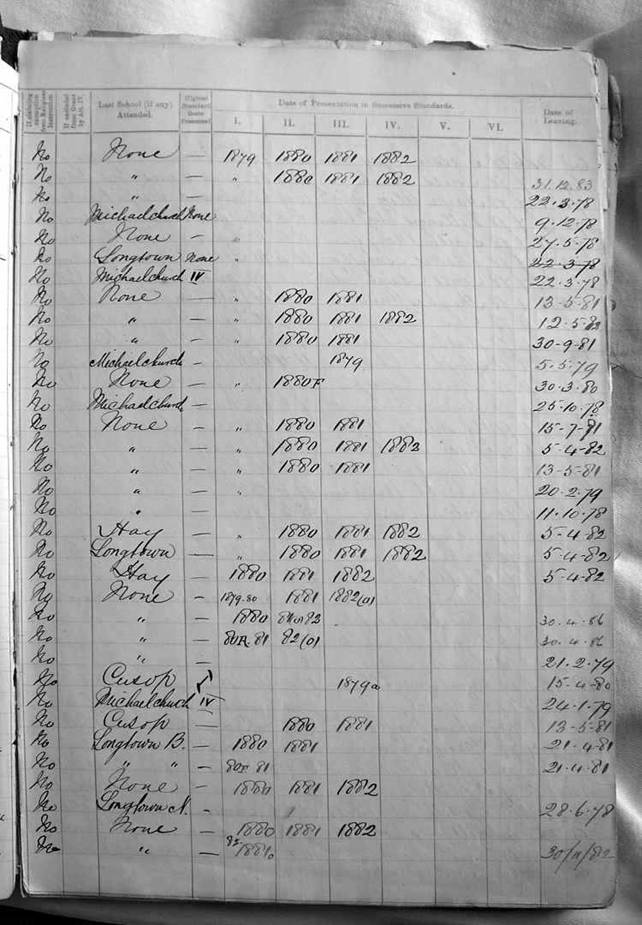 If claiming exemption from Religious Instruction
If excluded from Grant by Art. IV.
Last School (if any) Attended.
Highest Standard there Presented
Date of Presentation in Successive Standards.
I. II. III. IV. V. VI.
Date of Leaving.
No None — 1879 1880 1881 1882
No " — " 1880 1881 1882 31.12.83
No " — 22.3.78
No Michaelchurch None 9.12.78
No None — " 27.5.78
No Longtown None " 22.3.78
No Michaelchurch IV 22.3.78
No None — " 1880 1881 13-5-81
No " — " 1880 1881 1882 12-5-82
No " — " 1880 1881 30-9-81
No Michaelchurch — 1879 5.5.79
No None — " 1880F 30.3.80
No Michaelchurch — 25.10.78
No None — " 1880 1881 15-7-81
No " — " 1880 1881 1882 5-4-82
No " — " 1880 1881 13-5-81
No " — " 20-2-79
No " — 11.10.78
No Hay — " 1880 1881 1882 5-4-82
No Longtown — " 1880 1881 1882 5-4-82
No Hay — 1880 1881 1882 5-4-82
No None — 1879.80 1881 1882(0)
No " — 1880 82 30.4.86
No " — 81 82(0) 30.4.86
No " — 21.2.79
No Cusop 1879 15-4-80
No Michaelchurch IV 24-1-79
No Cusop — 1880 1881 13-5-81
No Longtown B. — 1880 1881 21-4-81
No " " — 81 21-4-81
No None — 1880 1881 1882
No Longtown N. - 28-6-78
No None — 1880 1881 1882
No " — 30/11/82